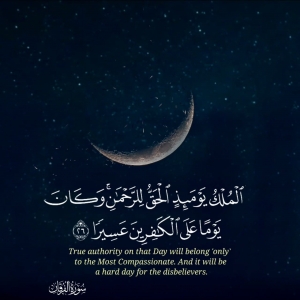 ٱلْمُلْكُ يَوْمَئِذٍ ٱلْحَقُّ لِلرَّحْمَٰنِ ۚ وَكَانَ
يَوْمًا عَلَى ٱلْكَٰفِرِينَ عَسِيرًا ٢٦
True authority on that Day will belong 'only'
to the Most Compassionate. And it will be
a hard day for the disbelievers.
سورة الفرقان